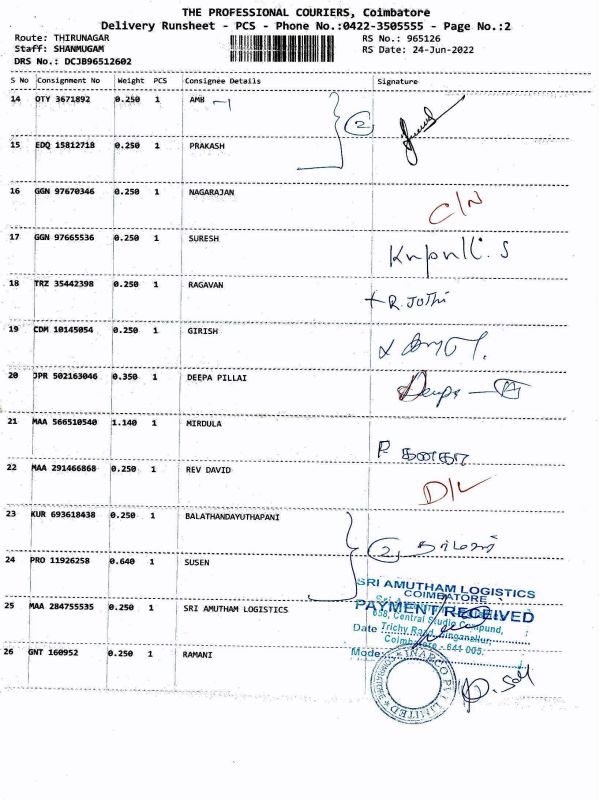 THE PROFESSIONAL COURIERS, Coimbatore
Delivery Runsheet - PCS - Phone No.:0422-3505555 - Page No.:2
Route: THIRUNAGAR RS No.: 965126
Staff: SHANMUGAM RS Date: 24-Jun-2022
DRS No.: DCJB96512602
S No Consignment No Weight PCS Consignee Details Signature
14 OTY 3671892 0.250 1 AMB 2
15 EDQ 15812718 0.250 1 PRAKASH
16 GGN 97670346 0.250 1 NAGARAJAN C/N
17 GGN 97665536 0.250 1 SURESH
18 TRZ 35442398 0.250 1 RAGAVAN R. Jothi
19 CDM 10145054 0.250 1 GIRISH
20 JPR 502163046 0.350 1 DEEPA PILLAI Deepa
21 MAA 566510540 1.140 1 MIRDULA
22 MAA 291466868 0.250 1 REV DAVID D/L
23 KUR 693618438 0.250 1 BALATHANDAYUTHAPANI 2
24 PRO 11926258 0.640 1 SUSEN
SRI AMUTHAM LOGISTICS
COIMBATORE
25 MAA 284755535 0.250 1 SRI AMUTHAM LOGISTICS PAYMENT RECEIVED
658, Central Studio Compund,
Date Trichy Road, Singanallur,
Coimbatore - 641 005.
26 GNT 160952 0.250 1 RAMANI Mode: